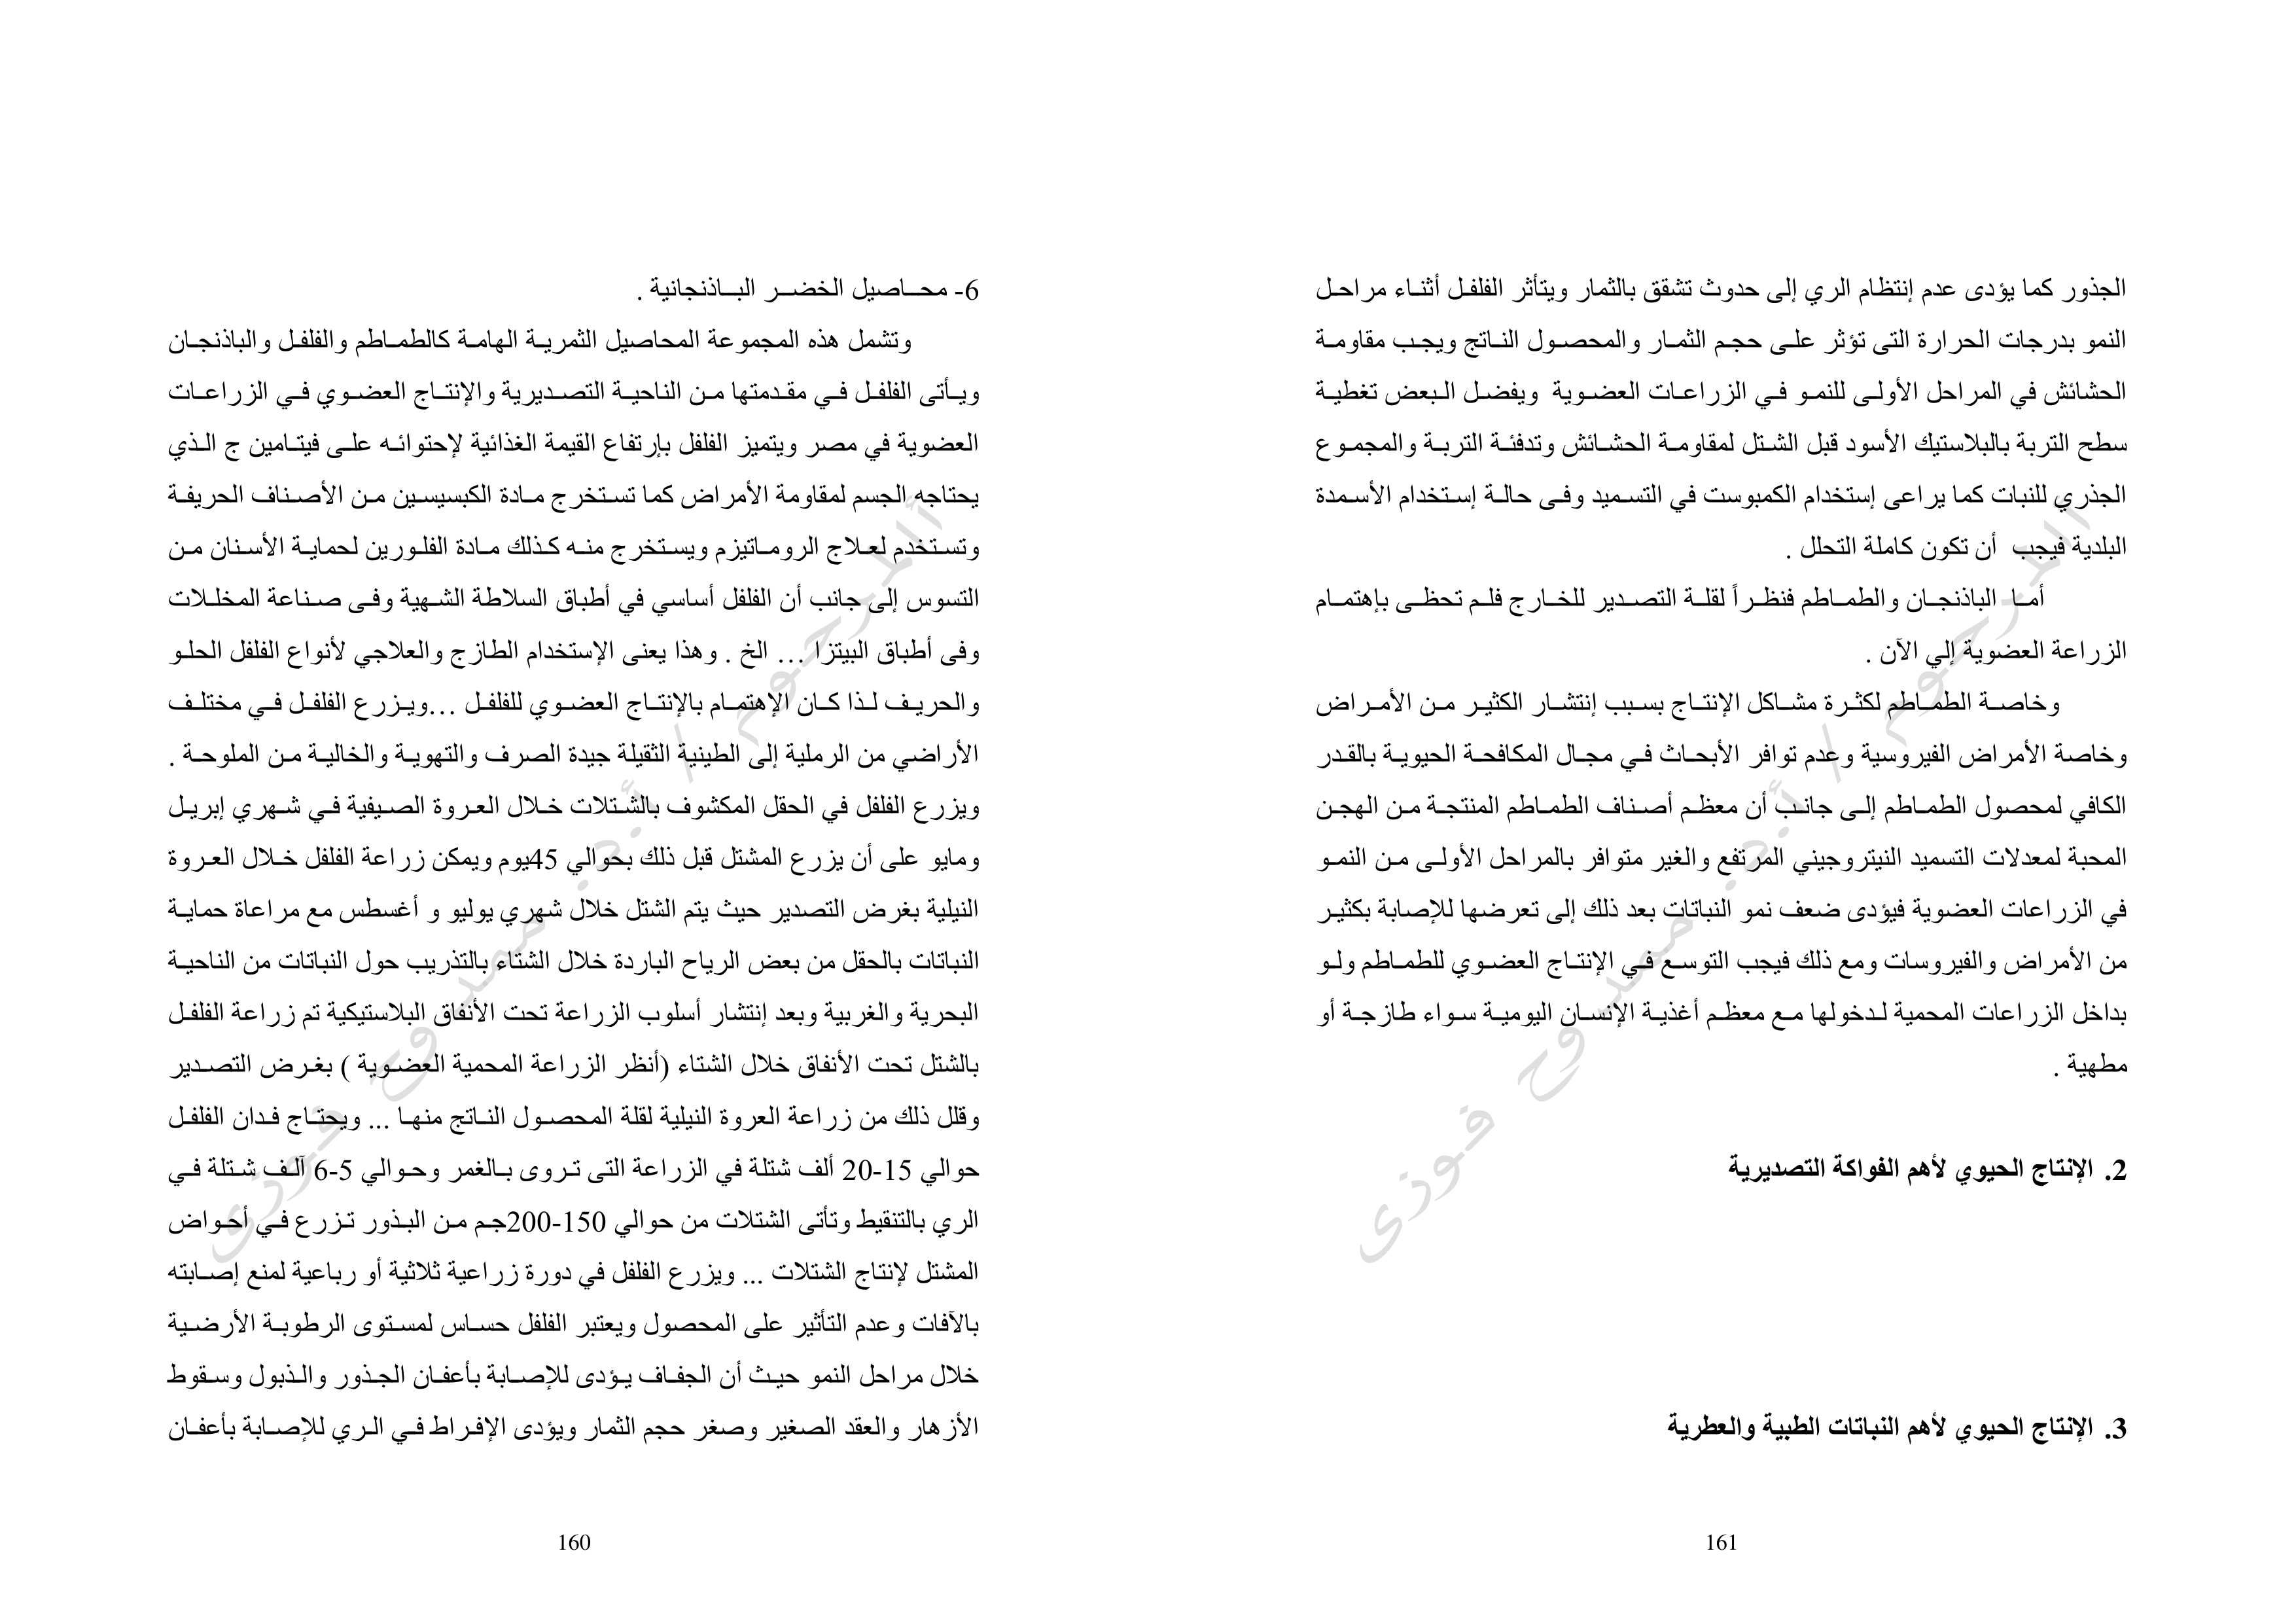 6- محاصيل الخضر الباذنجانية .
وتشمل هذه المجموعة المحاصيل الثمرية الهامة كالطماطم والفلفل والباذنجان
ويأتى الفلفل في مقدمتها من الناحية التصديرية والإنتاج العضوي في الزراعات
العضوية في مصر ويتميز الفلفل بإرتفاع القيمة الغذائية لإحتوائه على فيتامين ج الذي
يحتاجه الجسم لمقاومة الأمراض كما تستخرج مادة الكبسيسين من الأصناف الحريفة
وتستخدم لعلاج الروماتيزم ويستخرج منه كذلك مادة الفلورين لحماية الأسنان من
التسوس إلى جانب أن الفلفل أساسي في أطباق السلاطة الشهية وفى صناعة المخللات
وفى أطباق البيتزا ... الخ . وهذا يعنى الإستخدام الطازج والعلاجي لأنواع الفلفل الحلو
والحريف لذا كان الإهتمام بالإنتاج العضوي للفلفل ...ويزرع الفلفل في مختلف
الأراضي من الرملية إلى الطينية الثقيلة جيدة الصرف والتهوية والخالية من الملوحة .
ويزرع الفلفل في الحقل المكشوف بالشتلات خلال العروة الصيفية في شهري إبريل
ومايو على أن يزرع المشتل قبل ذلك بحوالي 45يوم ويمكن زراعة الفلفل خلال العروة
النيلية بغرض التصدير حيث يتم الشتل خلال شهري يوليو و أغسطس مع مراعاة حماية
النباتات بالحقل من بعض الرياح الباردة خلال الشتاء بالتذريب حول النباتات من الناحية
البحرية والغربية وبعد إنتشار أسلوب الزراعة تحت الأنفاق البلاستيكية تم زراعة الفلفل
بالشتل تحت الأنفاق خلال الشتاء (أنظر الزراعة المحمية العضوية ) بغرض التصدير
وقلل ذلك من زراعة العروة النيلية لقلة المحصول الناتج منها ... ويحتاج فدان الفلفل
حوالي 15-20 ألف شتلة في الزراعة التى تروى بالغمر وحوالي 5-6 آلف شتلة في
الري بالتنقيط وتأتى الشتلات من حوالي 150-200جم من البذور تزرع في أحواض
المشتل لإنتاج الشتلات ... ويزرع الفلفل في دورة زراعية ثلاثية أو رباعية لمنع إصابته
بالآفات وعدم التأثير على المحصول ويعتبر الفلفل حساس لمستوى الرطوبة الأرضية
خلال مراحل النمو حيث أن الجفاف يؤدى للإصابة بأعفان الجذور والذبول وسقوط
الأزهار والعقد الصغير وصغر حجم الثمار ويؤدى الإفراط في الري للإصابة بأعفان
160
المرحوم / أ.د. ممدوح فوزى
الجذور كما يؤدى عدم إنتظام الري إلى حدوث تشقق بالثمار ويتأثر الفلفل أثناء مراحل
النمو بدرجات الحرارة التى تؤثر على حجم الثمار والمحصول الناتج ويجب مقاومة
الحشائش في المراحل الأولى للنمو في الزراعات العضوية ويفضل البعض تغطية
سطح التربة بالبلاستيك الأسود قبل الشتل لمقاومة الحشائش وتدفئة التربة والمجموع
الجذري للنبات كما يراعى إستخدام الكمبوست في التسميد وفى حالة إستخدام الأسمدة
البلدية فيجب أن تكون كاملة التحلل .
أما الباذنجان والطماطم فنظراً لقلة التصدير للخارج فلم تحظى بإهتمام
الزراعة العضوية إلي الآن .
وخاصة الطماطم لكثرة مشاكل الإنتاج بسبب إنتشار الكثير من الأمراض
وخاصة الأمراض الفيروسية وعدم توافر الأبحاث في مجال المكافحة الحيوية بالقدر
الكافي لمحصول الطماطم إلى جانب أن معظم أصناف الطماطم المنتجة من الهجن
المحبة لمعدلات التسميد النيتروجيني المرتفع والغير متوافر بالمراحل الأولى من النمو
في الزراعات العضوية فيؤدى ضعف نمو النباتات بعد ذلك إلى تعرضها للإصابة بكثير
من الأمراض والفيروسات ومع ذلك فيجب التوسع في الإنتاج العضوي للطماطم ولو
بداخل الزراعات المحمية لدخولها مع معظم أغذية الإنسان اليومية سواء طازجة أو
مطهية .
2. الإنتاج الحيوي لأهم الفواكة التصديرية
3. الإنتاج الحيوي لأهم النباتات الطبية والعطرية
161
المرحوم / أ.د. ممدوح فوزى